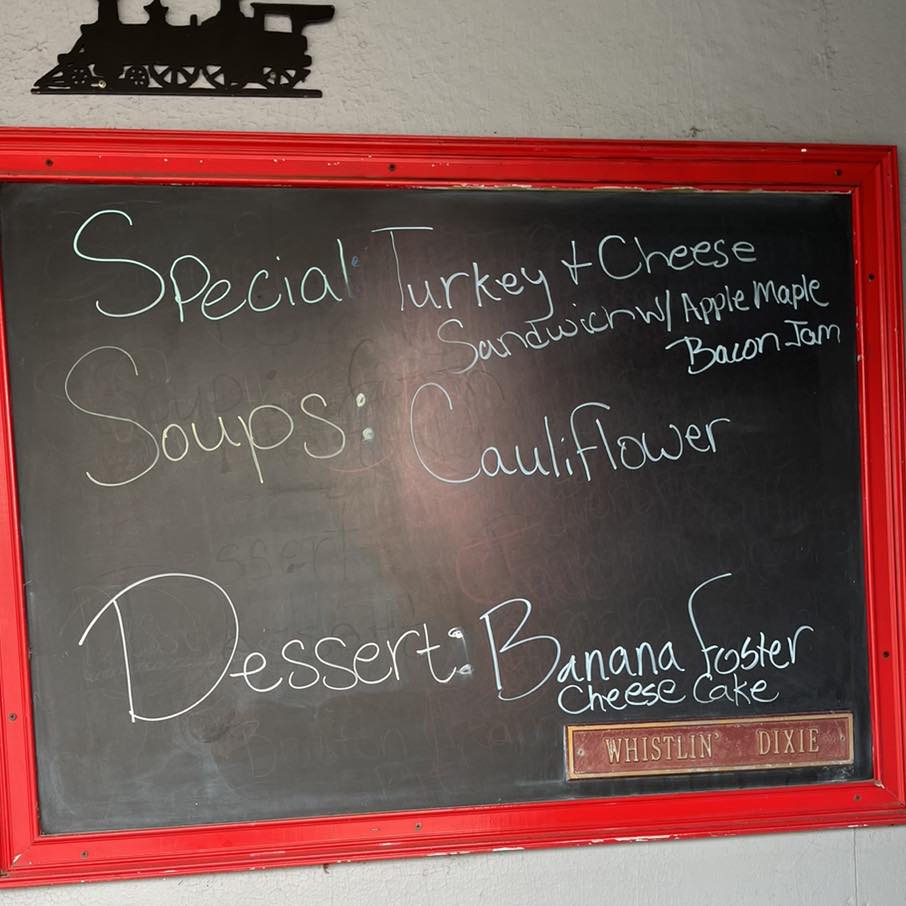 Special: Turkey + Cheese
Sandwich w/ Apple Maple
Bacon Jam
Soups: Cauliflower
Dessert: Banana Foster
Cheese Cake
WHISTLIN' DIXIE